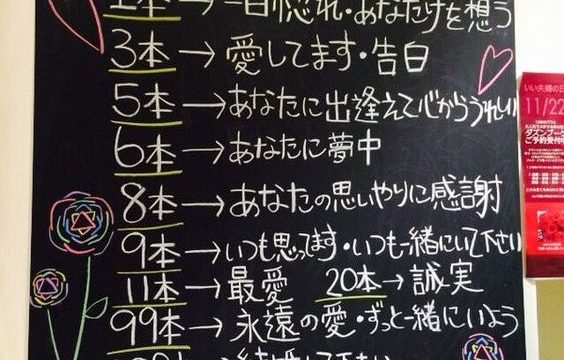 1本→一目惚れ・あなただけを想う
3本→愛してます・告白
5本→あなたに出逢えて心からうれしい
6本→あなたに夢中
8本→あなたの思いやりに感謝
9本→いつも思ってます・いつも一緒にいて下さい
11本→最愛 20本→誠実
99本→永遠の愛・ずっと一緒にいよう
いい夫婦の日
11/22
ダズンブーケ
ご予約受付中